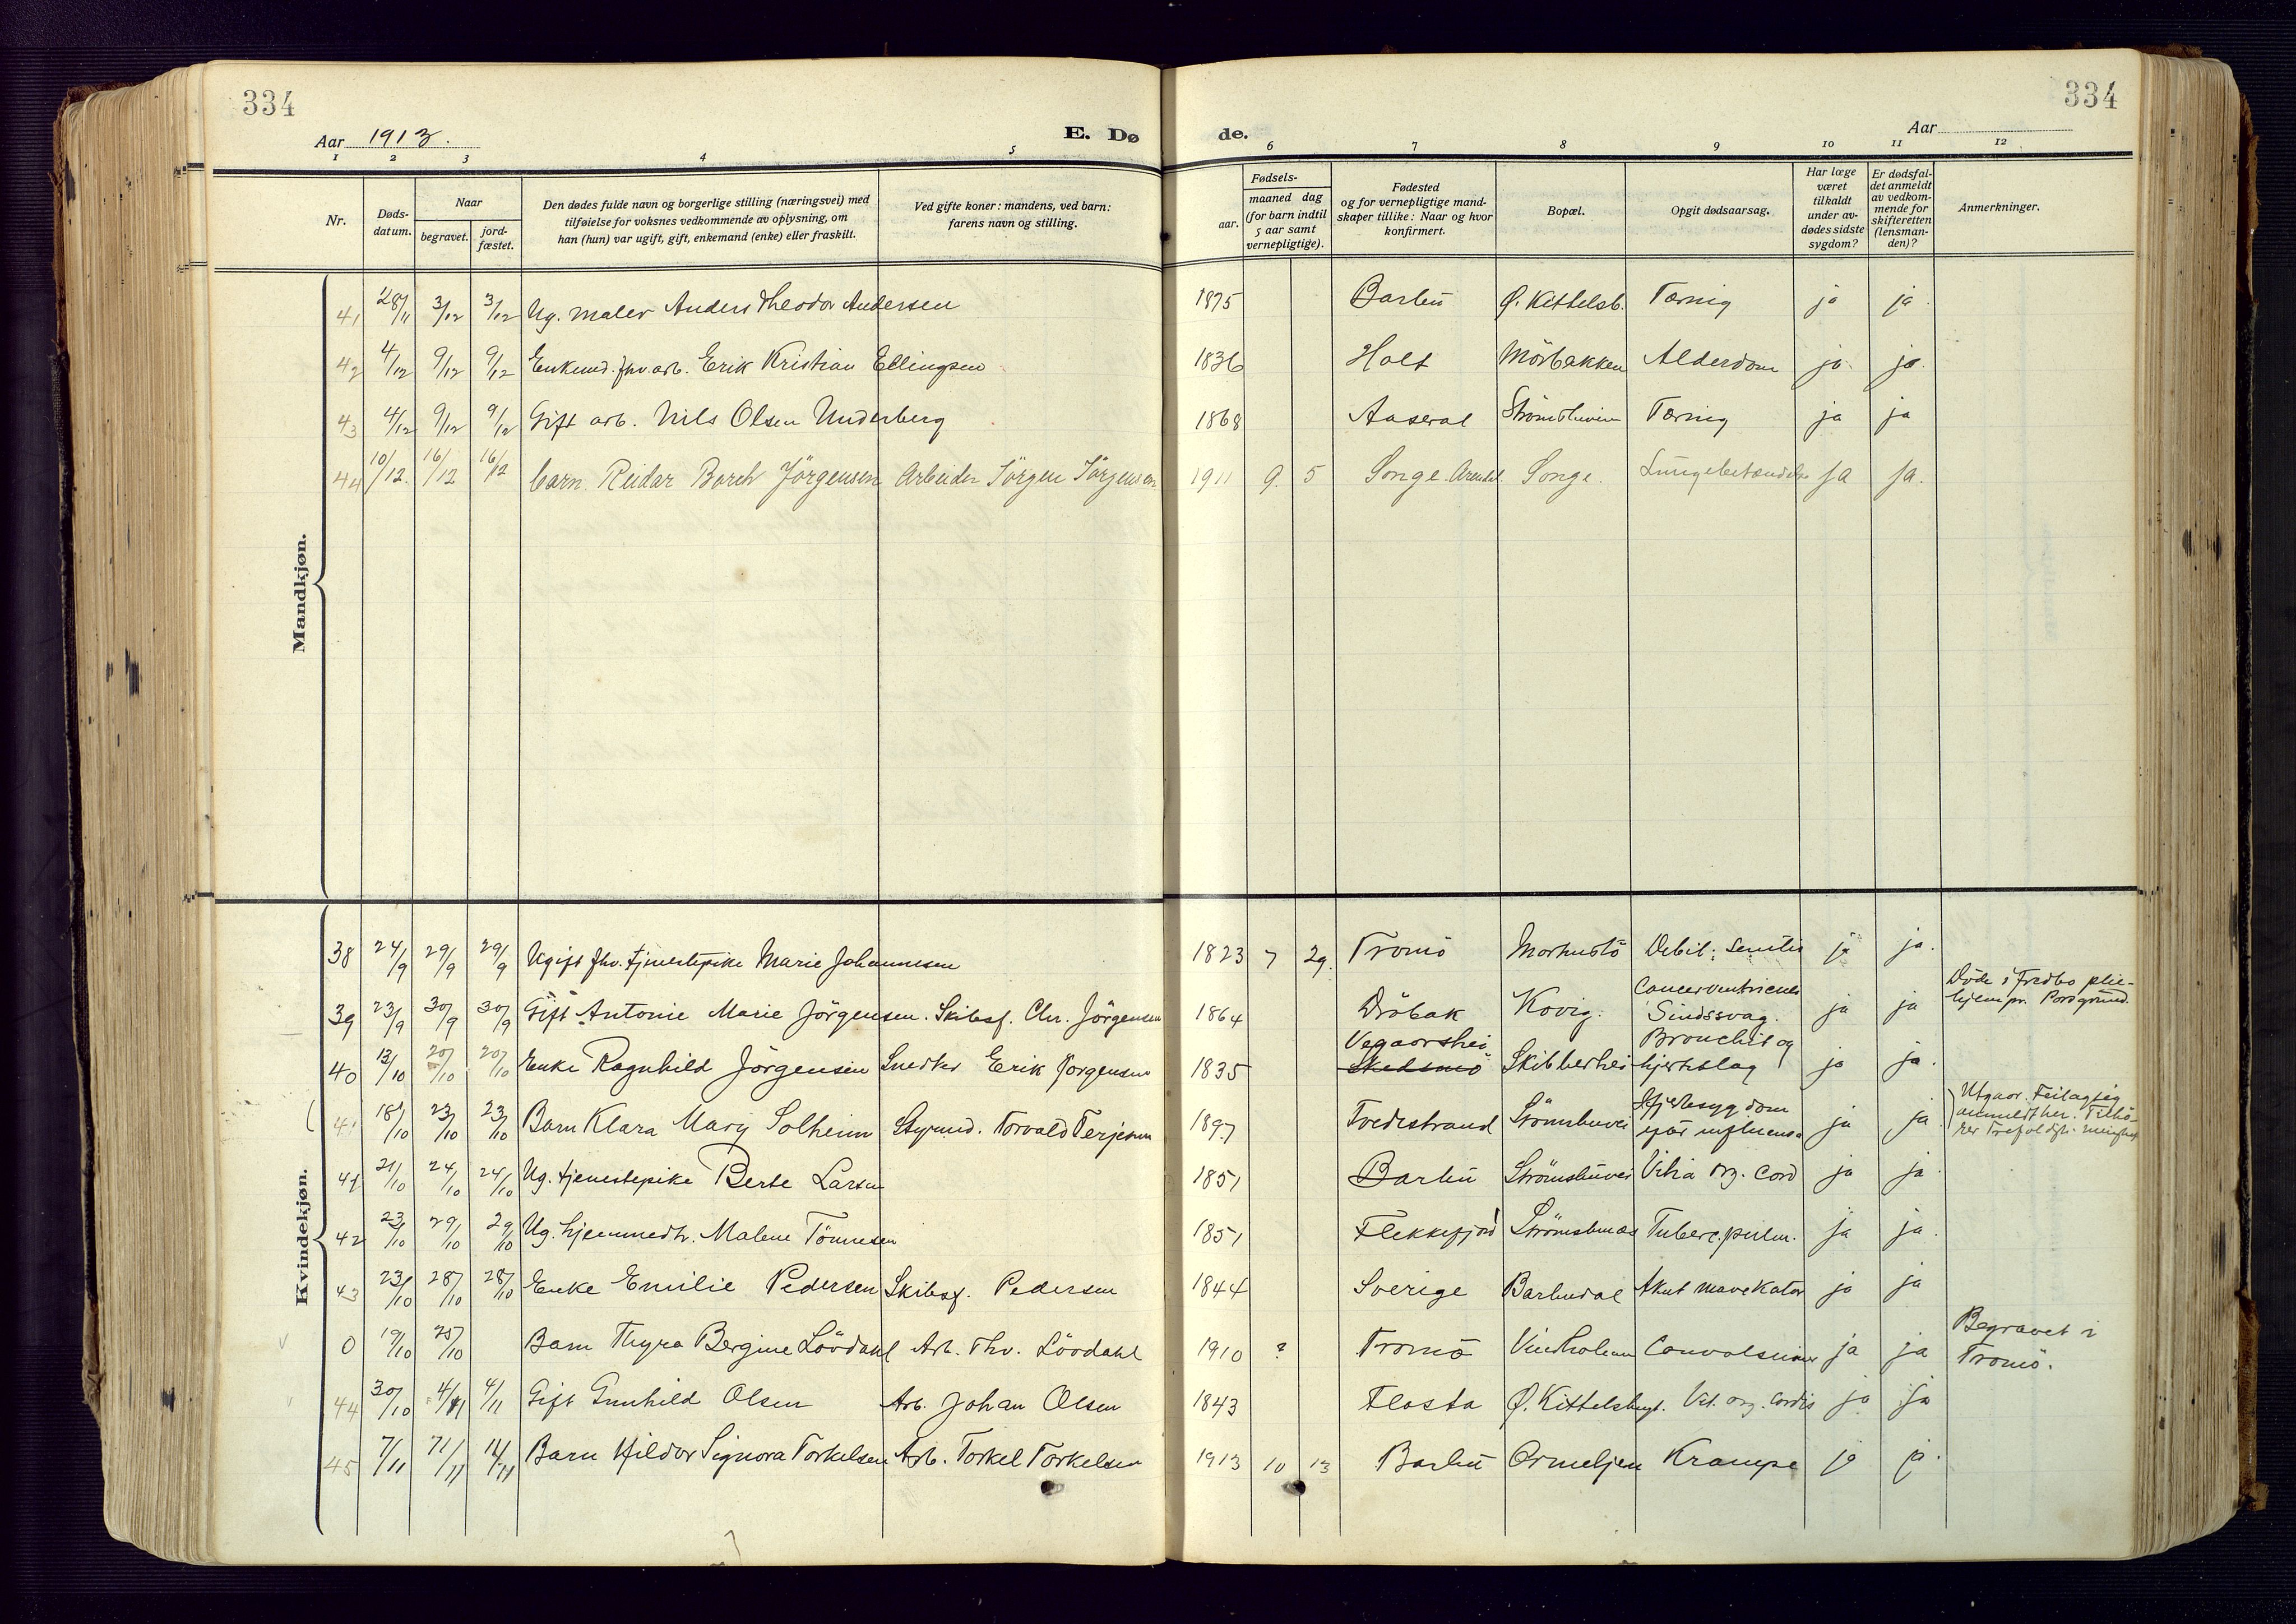 334
334
Aar 1913.
E. Dø
de.
Aar
1 2 3 4 5 6 7 8 9 10 11 12
Nr.
Døds-
datum.
Naar
begravet.
jord-
fæstet.
Den dødes fulde navn og borgerlige stilling (næringsvei) med
tilføielse for voksnes vedkommende av oplysning, om
han (hun) var ugift, gift, enkemand (enke) eller fraskilt.
Ved gifte koner: mandens, ved barn:
farens navn og stilling.
Fødsels-
aar.
maaned dag
(for barn indtil
5 aar samt
vernepligtige).
Fødested
og for vernepligtige mand-
skaper tillike: Naar og hvor
konfirmert.
Bopæl.
Opgit dødsaarsag.
Har læge
været
tilkaldt
under av-
dødes sidste
sygdom?
Er dødsfal-
det anmeldt
av vedkom-
mende for
skifteretten
(lensman-
den)?
Anmerkninger.
Mandkjøn.
41 28/11 3/12 3/12 Ug. maler Anders Theodor Andersen 1875 Barbu Ø. Kittelsb. Tæring ja ja
42 4/12 9/12 9/12 Enkemd. fhv. arb. Erik Kristian Ellingsen 1836 Holt Mörbakken Alderdom ja ja
43 4/12 9/12 9/12 Gift arb. Nils Olsen Underberg 1868 Aaseral Tæring ja ja
44 10/12 16/12 16/12 barn Reidar Borch Jörgensen Arbeider Jörgen Jörgensen 1911 9. 5 Songe Arendal Songe. Lungebetændelse ja ja.
Kvindekjøn.
38 24/9 29/9 29/9 Ugift fhv. tjenestepike Marie Johannesen 1823 7 29. Tromö Debil. senilis ja ja.
39 23/9 30/9 30/9 Gift Antonie Marie Jörgensen. Skibsf. Chr. Jörgensen 1864 Dröbak Kovig. Cancer ventriculi Sindssvag. ja ja Döde i Fredbo pleie-
hjem pr. Porsgrund.
40 13/10 20/10 20/10 Enke Ragnhild Jörgensen Snedker Erik Jörgensen 1835 Vegaarshei Skedsmo Skibberhei Bronchit og hjerteslag ja ja.
41 18/10 23/10 23/10 Barn Klara Mary Solheim Styrmd. Torvald Terjesen 1897 Tvedestrand Strömsbuvei Hjertesygdom efter influensa ja ja Utgaar. Feilagtig
anmeldt her. Tilhö-
rer Trefoldigh. menighet
41 21/10 24/10 24/10 Ug. tjenestepike Berte Larsen 1851 Barbu Strömsbuvei Vitia org. cord ja ja.
42 23/10 29/10 29/10 Ug. hjemmedtr. Malene Tönnesen 1851 Flekkefjord Strömsbuaas Tuberc. pulm. ja ja.
43 23/10 28/10 28/10 Enke Emilie Pedersen Skibsf. Pedersen 1844 Sverige Barbudal Akut mavekatar ja ja
0 19/10 25/10 Barn Thyra Bergine Lövdahl Arb. Thv. Lövdahl 1910 ? Tromö Vindholmen Convulsioner ja ja Begravet i
Tromö.
44 30/10 4/11 4/11 Gift Gunhild Olsen Arb. Johan Olsen 1843 Flosta Ø. Kittelsbugt. Vit. org. cordis ja ja
45 7/11 11/11 11/11 Barn Hildor Signora Torkelsen Arb. Torkel Torkelsen 1913 10 13 Barbu Krampe ja ja.